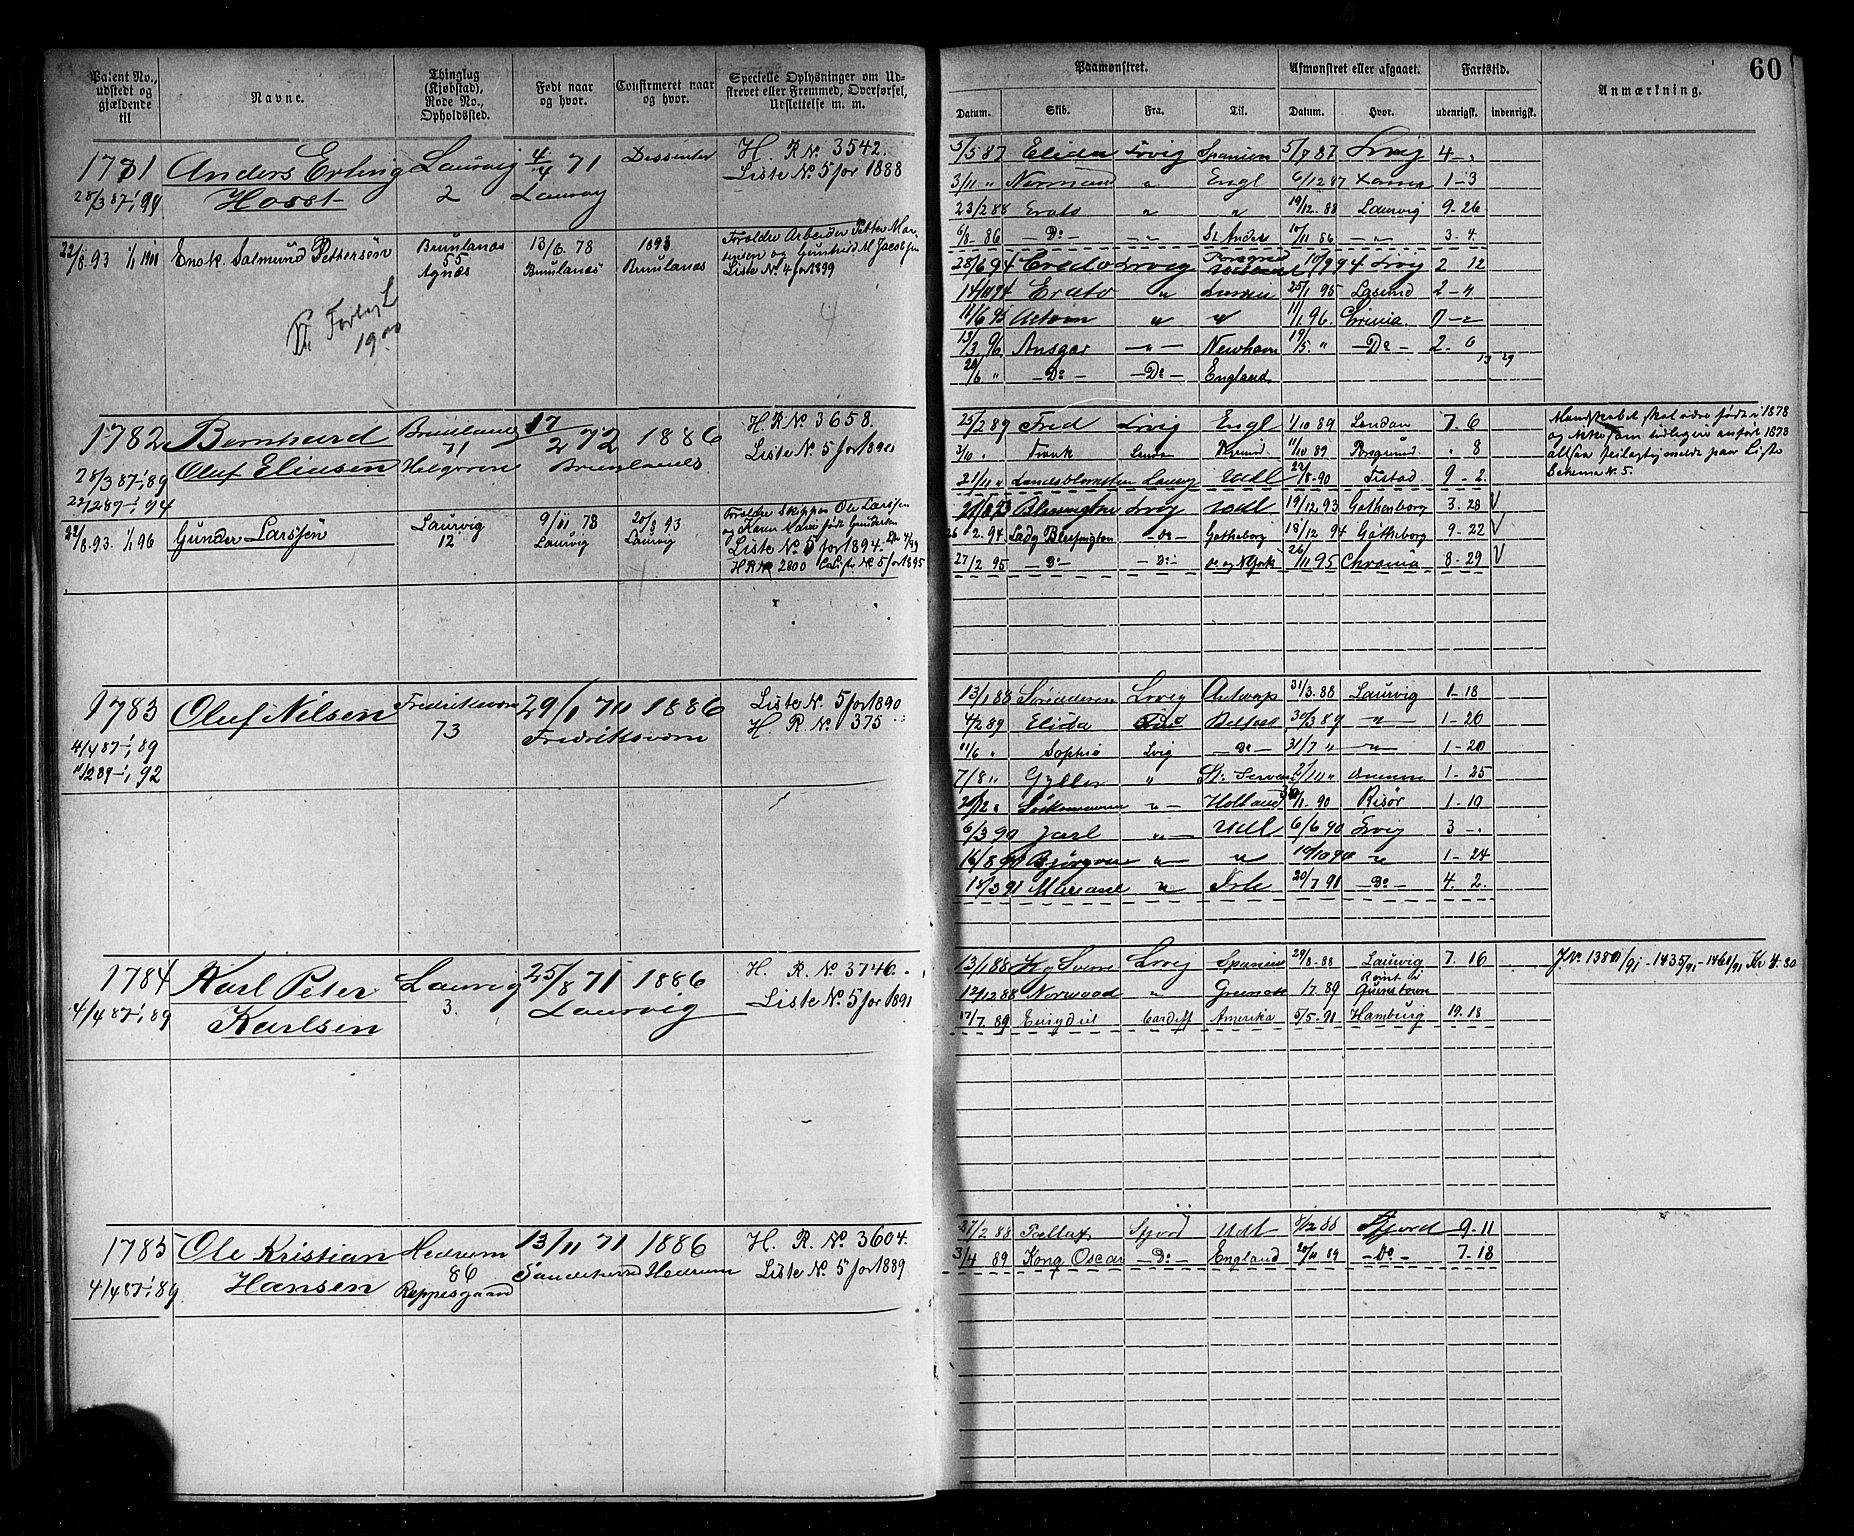 60
Patent No., udstedt og gjældende til
Navne.
Thinglag (Kjøbstad), Rode No., Opholdssted.
Født naar og hvor.
Confirmeret naar og hvor.
Specielle Oplysninger om Udstrevet eller Fremmed, Overførsel, Udslettelse m. m.
Paamønstret.
Afmønstret eller afgaaet.
Fartstid.
Anmærkning.
Datum. Skib. Fra. Til. Datum. Hvor. udenrigsk. indenrigsk.
1781 Anders Erling Laurvig 4/4 71 Dissenter H. R. No 3542.
28/3 87-1/1 Horst 2 Laurvig Liste No. 5 for 1888
5/5 87 Elida Lrvig Spanien 5/7 87 Lrvig 4 - "
3/11 " Normand " Engl 6/12 87 1-3
23/2 88 Erato " " 19/12 88 Laurvig 9-26
6/8 - 86 Do - " - St Andes 10/11 86 " 3-4
22/8.93 1/1 1901 Ensk. Salmund Pettersen Brunlanæs 55 Agnæs 13/6 78 Brunlanæs 1893 Brunlanæs Forældre Arbeider Petter Mar-
tinsen og Gunhild M Jacobsen
Liste No. 4 for 1899
28/6 94 Credo Lrvig 10/9 94 Lrvig 2 12
Erato " 25/1 95 2-4
11/6 95 " " 11/1 96.
13/3 96 Ansgar - " - Newhavn 19/5 " - Do - 2-0
20/6 " - Do - - Do - England
1900
4
1782 Bernhard Brunlanæs 17/2 72 1886 H. R No 3658.
28/3 87-1/1 89 Oluf Eliasen 71 Helgeroen Brunlanes Liste No. 5 for 1890
22/12 87-1/1 94
25/2 89 Fred Lrvig Engl 1/10 89 London 7 6
3/10 " 11/10 89 Porsgrund " 8
21/11 " Landsblomsten Laurvig Udl 22/8-90 9-2
Mandskabet skal være født i 1878
og ikke som tidligere anført 1873
altsaa feilagtig melde paa Liste
Schema No. 5.
22/8.93. 1/1 96 Gunder Larssen Laurvig 12 9/11 78 Laurvig 20/8 93 Laurvig Forældre Skipper Ole Larssen
og Karen Marie født Gundersen
Liste No. 5 for 1894
H R No 2800 Liste No 5 for 1895
Blessington Lrvig Udl 19/12 93 Gothenborg 3.28 V
26/2.94 Lady Blessington - Do - Gotheborg 18/12 94 Gøtheborg 9-22 V
27/2 95 - Do - - Do - Do og N York 26/11 95 Chrania 8-29 V
1783 Oluf Nilsen Fredriksværn 29/1 71 1886 Liste No. 5 for 1890
4/4 87-1/1 89 73 Fredriksværn H. R. No. 375
4/2 89-1/1 92
13/1 88 Lrvig Antwerp 31/3.88 Laurvig 1-18
4/2 89 Elida Belfast 30/3 89 " 1-26
11/6 " Sophie Lvig - Do - 31/7 " " 1-20
7/8 " Gyller " St. Servan 1-25
" Holland 90 Risør 1-10
6/3 90 Jarl " Udl 6/6 90 Lrvig 3 -
16/8 90 Bjørgvin " " 19/10 90 " 1-24
Mariane " 20/7 91 - Do - 4.2.
1784 Karl Peter Laurvig 25/8 71 1886 H. R. No 3746.
4/4 87-1/1 89 Karlsen 3. Laurvig Liste No. 5 for 1891
13/1 88 Kg Sverre Lrvig Spanien 29/8-88 Laurvig 7.16
12/12 88 Norwood " 1/7.89 Rømt i Quinstown
17/7.89 Cardiff Amerika 5/5-91 Hamburg 19.18
J No 1380/91 - 1435/91 - 1461/91 Kr 4.80
1785 Ole Kristian Hedrum 13/11 71 1886 H. R. No. 3604.
4/4 87-1/1 89 Hansen 86 Reppesgaard Sandeherred Hedrum Liste No. 5 for 1889
27/2 88 Sfjord Udl 8/12 88 Sfjord 9-11
3/4 89 Kong Oscar - Do - England 20/11 89 - Do - 7-18